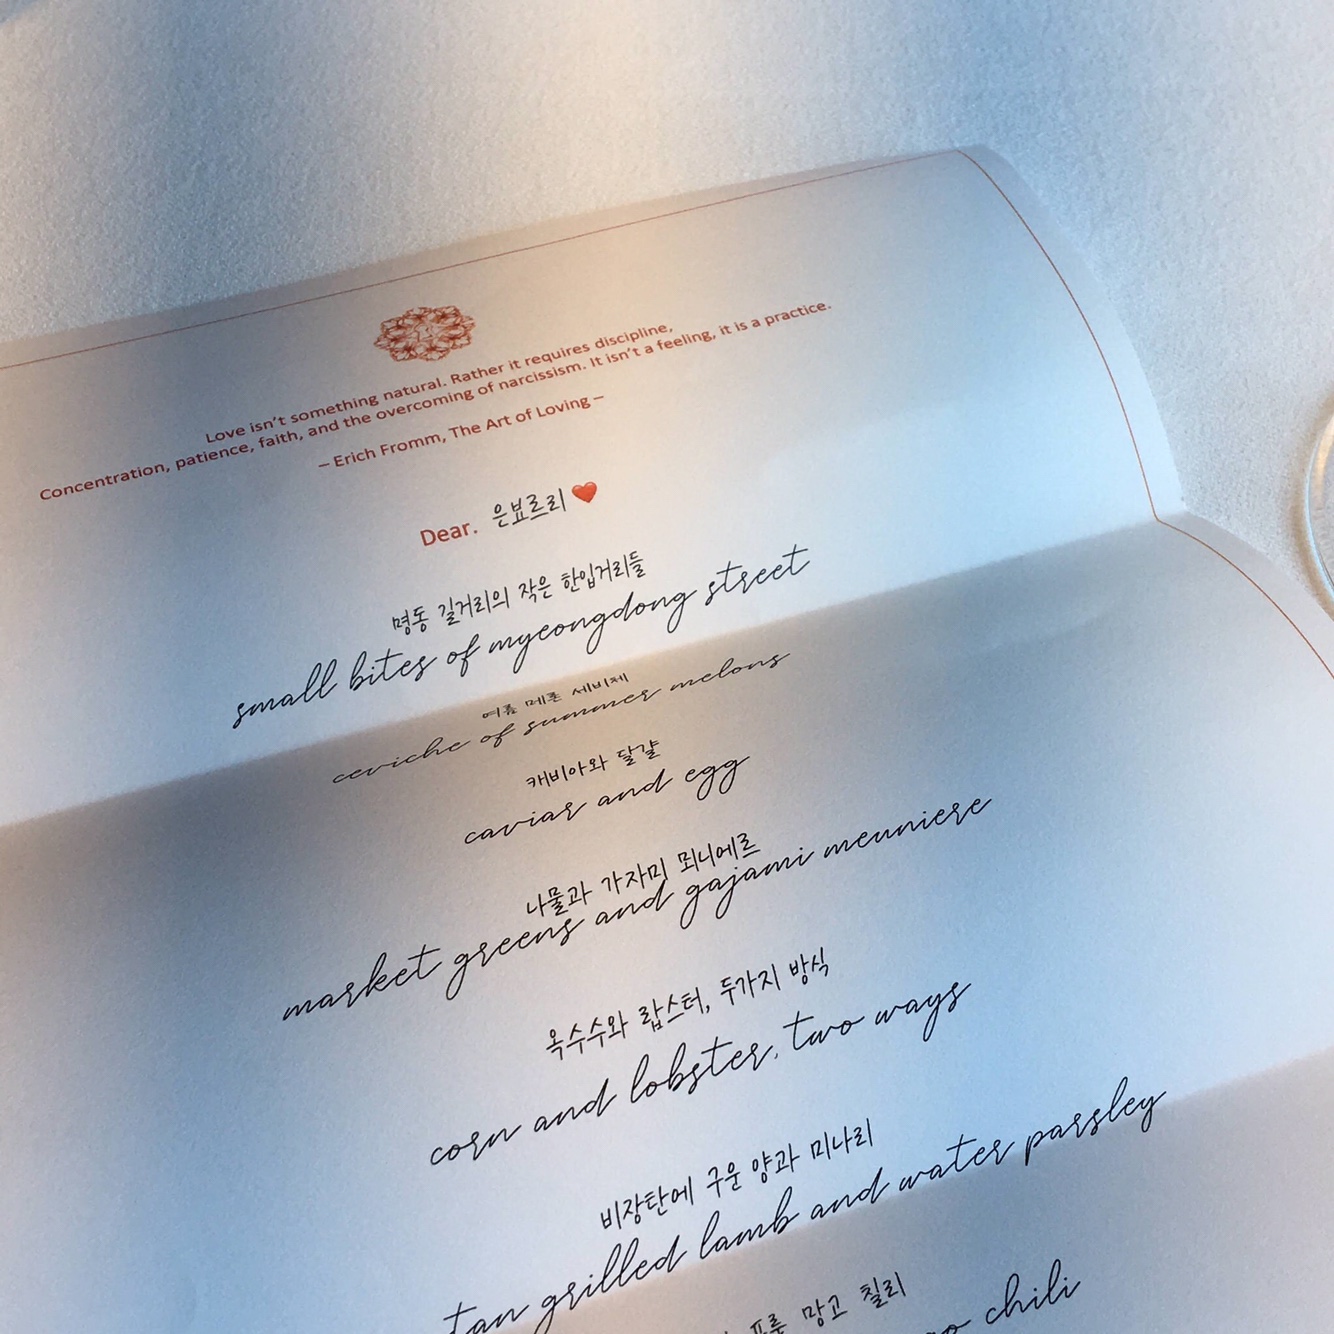 Love isn't something natural. Rather it requires discipline,
Concentration, patience, faith, and the overcoming of narcissism. It isn't a feeling, it is a practice.
– Erich Fromm, The Art of Loving –
Dear. 은뵤르리 ❤️
명동 길거리의 작은 한입거리들
small bites of myeongdong street
여름 메론 세비체
ceviche of summer melons
캐비아와 달걀
caviar and egg
나물과 가자미 뫼니에르
market greens and gajami meuniere
옥수수와 랍스터, 두가지 방식
corn and lobster, two ways
비장탄에 구운 양과 미나리
tan grilled lamb and water parsley
프룻 망고 칠리
chili